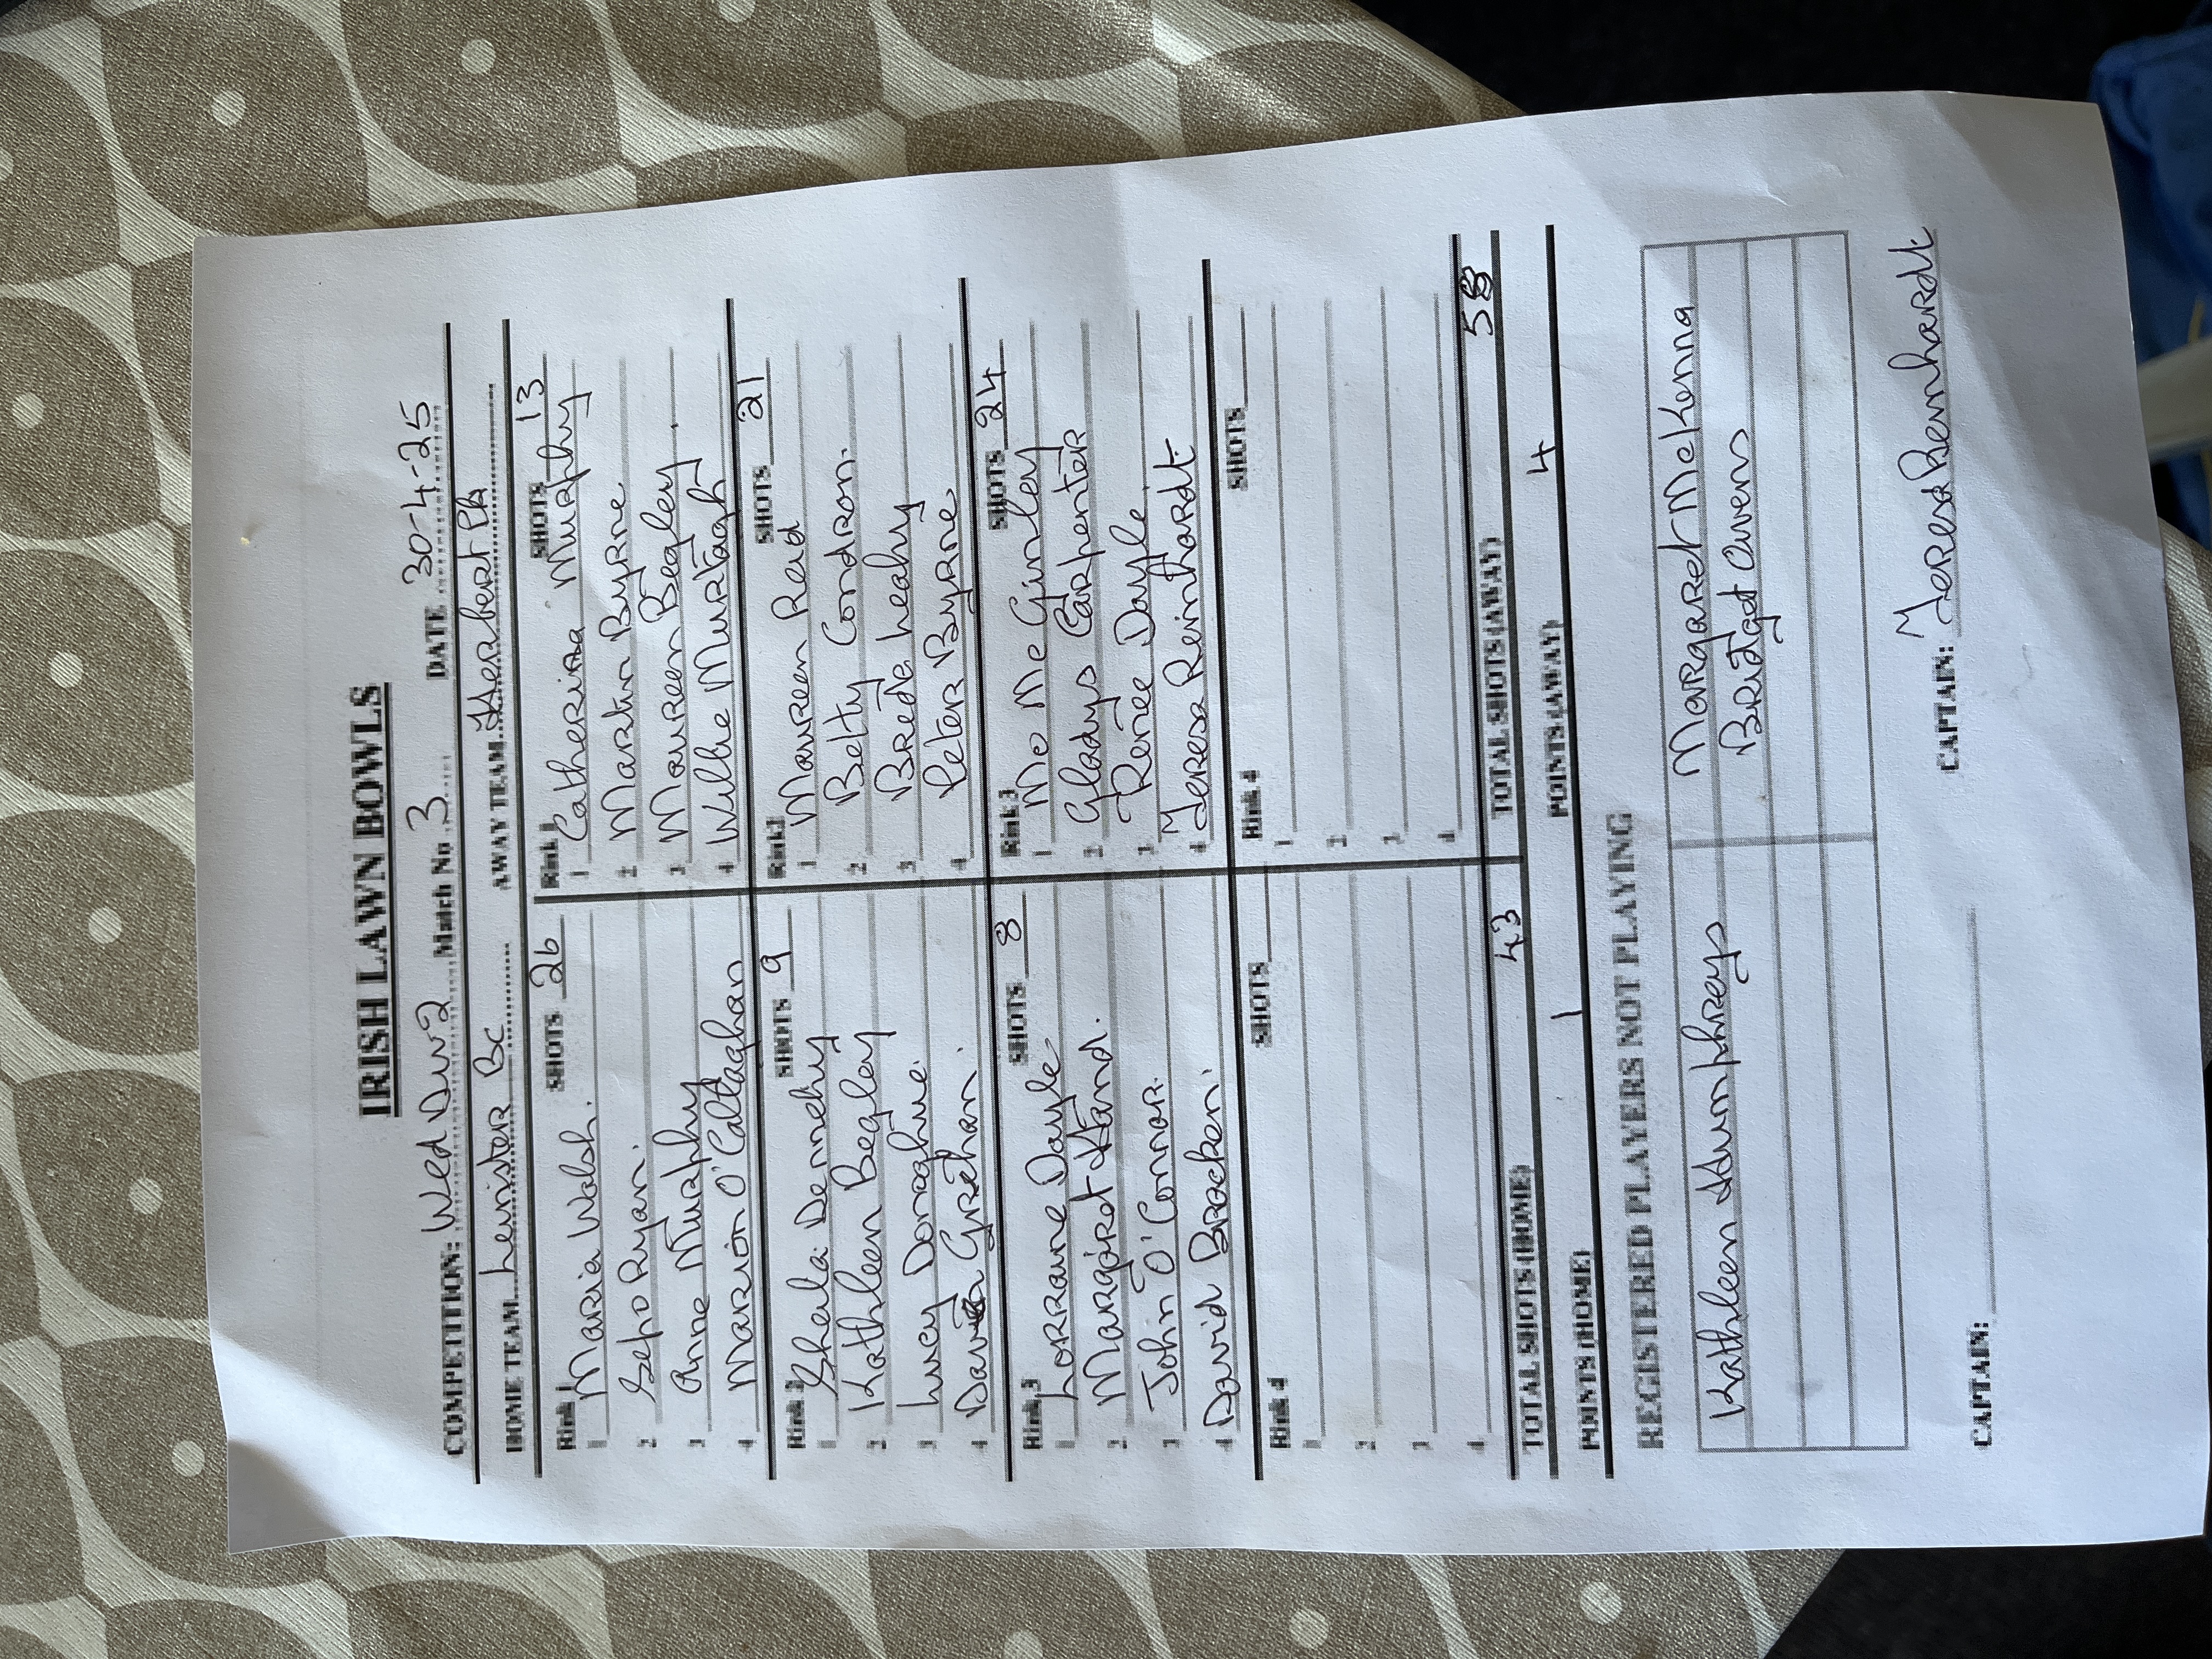 IRISH LAWN BOWLS
COMPETITION: Wed Div 2 Match No 3 DATE 30-4-25
HOME TEAM Leinster Bc AWAY TEAM Herbert Pk
Rink 1 SHOTS 26
1 Maria Walsh.
2 Ryan.
3 Anne Murphy
4 Marion O'Callaghan
Rink 1 SHOTS 13
1 Catherina Murphy
2 Martin Byrne
3 Maureen Begley.
4 Willie Murtagh
Rink 2 SHOTS 9
1 Sheila Dennehy
2 Kathleen Begley
3 Lucy Donaghue.
4 David Grehan.
Rink 2 SHOTS 21
1 Maureen Reid
2 Betty Condron.
3 Breda Leahy
4 Peter Byrne
Rink 3 SHOTS 8
1 Lorraine Doyle
2 Margaret Hand.
3 John O'Connor.
4 David Bracken.
Rink 3 SHOTS 24
1 Mo McGinley
2 Gladys Carpenter
3 Renee Doyle.
4 Teresa Reinhardt
Rink 4 SHOTS
1
2
3
4
Rink 4 SHOTS
1
2
3
4
TOTAL SHOTS (HOME) 43 TOTAL SHOTS (AWAY) 58
POINTS (HOME) 1 POINTS (AWAY) 4
REGISTERED PLAYERS NOT PLAYING
Kathleen Humphreys Margaret McKenna
Bridget Owens
CAPTAIN: CAPTAIN: Teresa Reinhardt